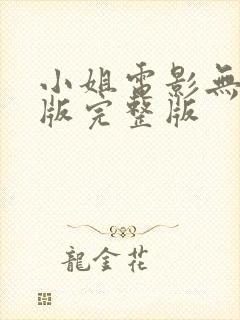 小姐電影無
版完整版
龍金花